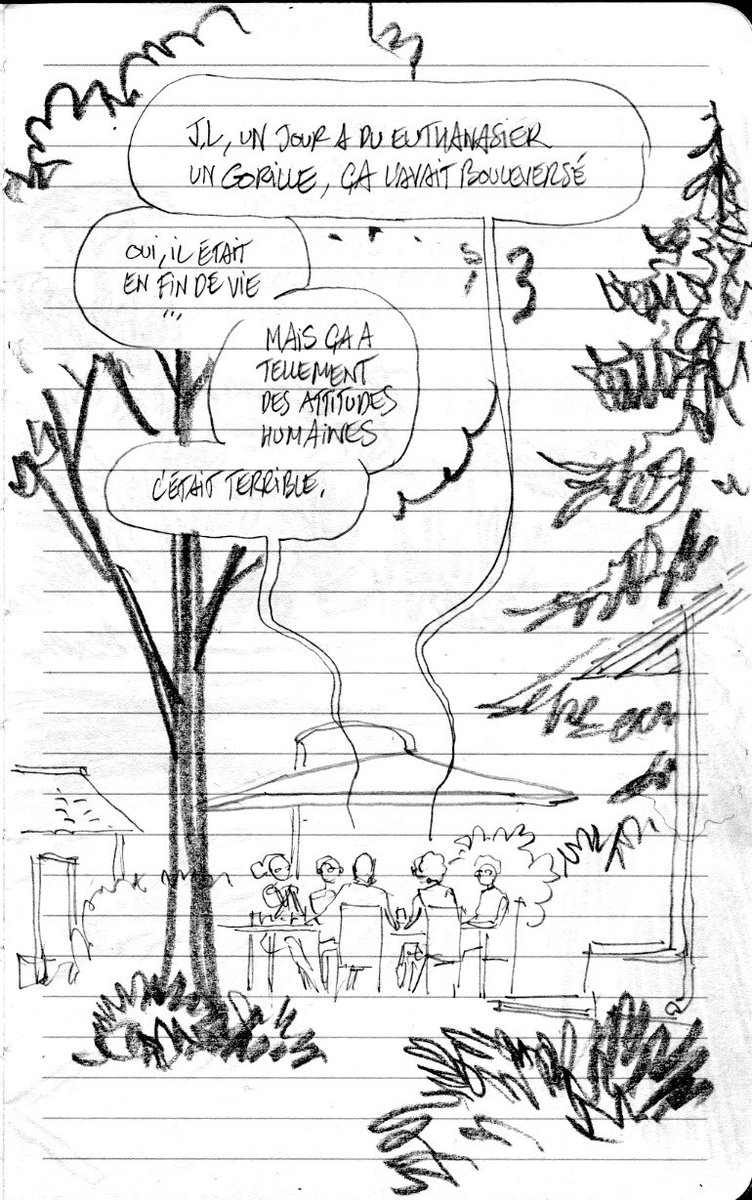 J.L, UN JOUR A DU EUTHANASIER
UN GORILLE, ÇA L'AVAIT BOULEVERSÉ
OUI, IL ÉTAIT
EN FIN DE VIE
...
MAIS ÇA A
TELLEMENT
DES ATTITUDES
HUMAINES
C'ÉTAIT TERRIBLE.